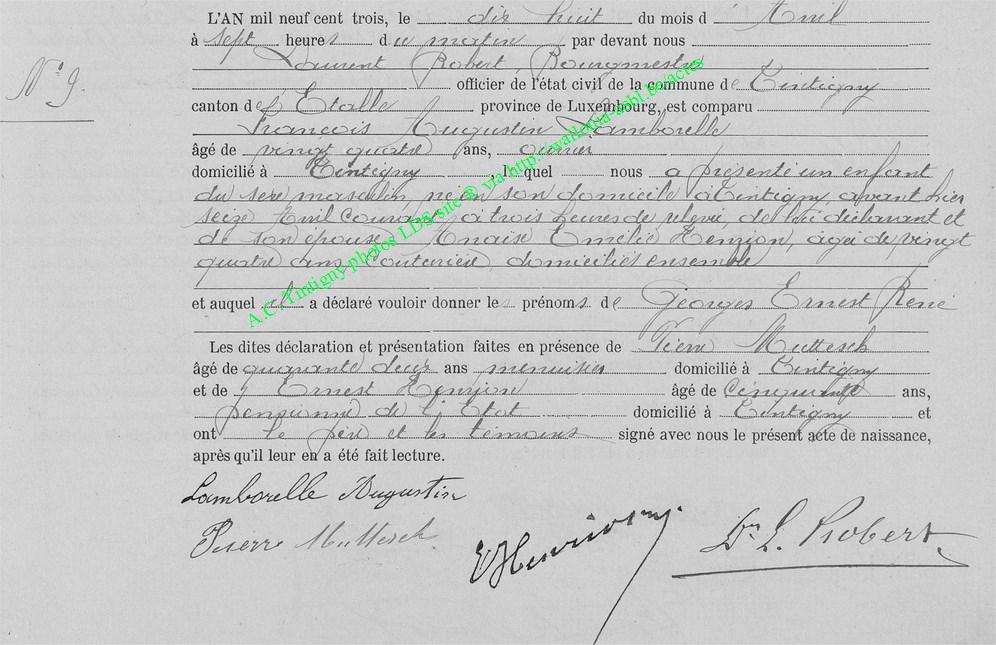 L'AN mil neuf cent trois, le dix huit du mois d'Avril
à sept heures du matin par devant nous
Laurent Robert, Bourgmestre
N° 9.
officier de l'état civil de la commune de Tintigny
canton d'Etalle province de Luxembourg, est comparu
François Augustin Lamborelle
âgé de vingt quatre ans, ouvrier
domicilié à Tintigny, lequel nous a présenté un enfant
du sexe masculin, né en son domicile à Tintigny, avant hier
seize Avril courant, à trois heures de relevé, de lui déclarant et
de son épouse Anaïse Emélie Henrion, agée de vingt
quatre ans, couturière, domiciliés ensemble
et auquel il a déclaré vouloir donner les prénoms de Georges Ernest René
Les dites déclaration et présentation faites en présence de Pierre Muttesch
âgé de quarante deux ans menuisier domicilié à Tintigny
et de Ernest Henrion âgé de Cinquante ans,
pensionné de l'Etat domicilié à Tintigny et
ont le père et les témoins signé avec nous le présent acte de naissance,
après qu'il leur en a été fait lecture.
Lamborelle Augustin
Pierre Muttesch
EHenrion
Dr L. Robert
A.C. Tintigny-photos LDS-site ® via http://wallonia-asbl.be/actes